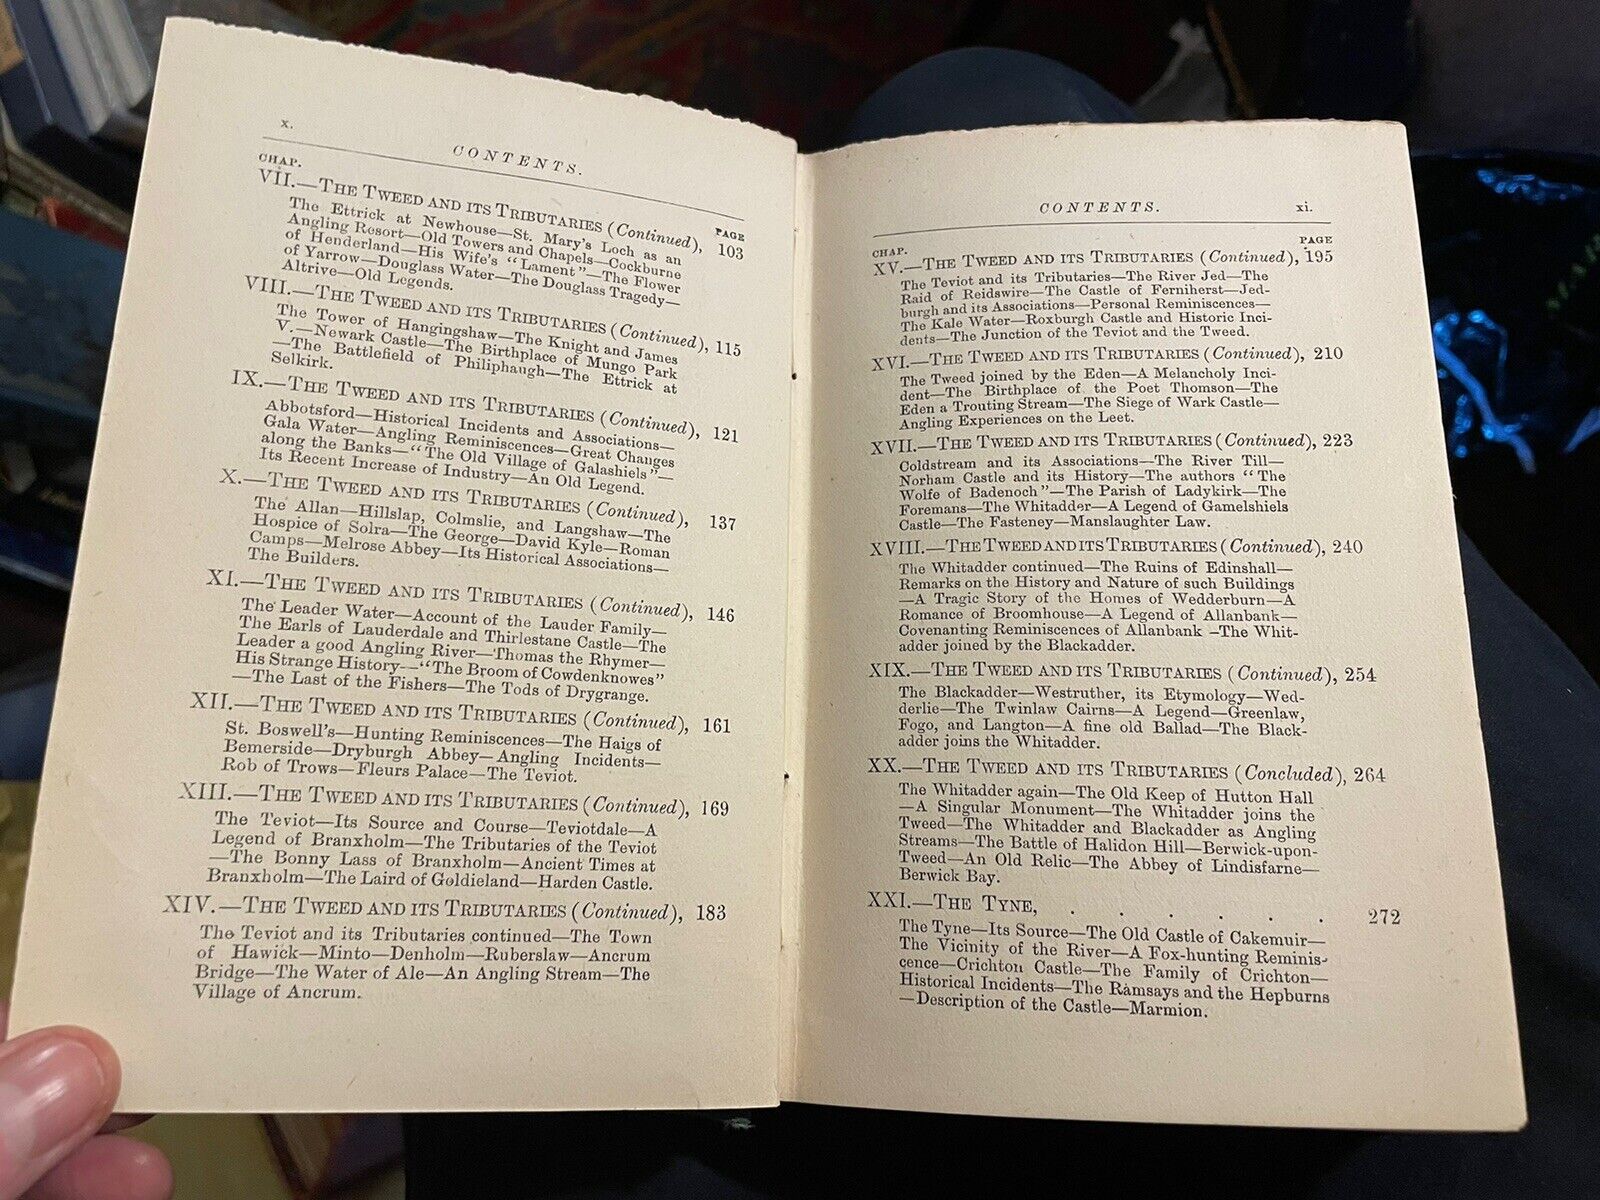 x.
CONTENTS.
CHAP.
PAGE
VII.—THE TWEED AND ITS TRIBUTARIES (Continued), 103
The Ettrick at Newhouse—St. Mary's Loch as an
Angling Resort—Old Towers and Chapels—Cockburne
of Henderland—His Wife's "Lament"—The Flower
of Yarrow—Douglass Water—The Douglass Tragedy—
Altrive—Old Legends.
VIII.—THE TWEED AND ITS TRIBUTARIES (Continued), 115
The Tower of Hangingshaw—The Knight and James
V.—Newark Castle—The Birthplace of Mungo Park
—The Battlefield of Philiphaugh—The Ettrick at
Selkirk.
IX.—THE TWEED AND ITS TRIBUTARIES (Continued), 121
Abbotsford—Historical Incidents and Associations—
Gala Water—Angling Reminiscences—Great Changes
along the Banks—"The Old Village of Galashiels"—
Its Recent Increase of Industry—An Old Legend.
X.—THE TWEED AND ITS TRIBUTARIES (Continued), 137
The Allan—Hillslap, Colmslie, and Langshaw—The
Hospice of Solra—The George—David Kyle—Roman
Camps—Melrose Abbey—Its Historical Associations—
The Builders.
XI.—THE TWEED AND ITS TRIBUTARIES (Continued), 146
The Leader Water—Account of the Lauder Family—
The Earls of Lauderdale and Thirlestane Castle—The
Leader a good Angling River—Thomas the Rhymer—
His Strange History—"The Broom of Cowdenknowes"
—The Last of the Fishers—The Tods of Drygrange.
XII.—THE TWEED AND ITS TRIBUTARIES (Continued), 161
St. Boswell's—Hunting Reminiscences—The Haigs of
Bemerside—Dryburgh Abbey—Angling Incidents—
Rob of Trows—Fleurs Palace—The Teviot.
XIII.—THE TWEED AND ITS TRIBUTARIES (Continued), 169
The Teviot—Its Source and Course—Teviotdale—A
Legend of Branxholm—The Tributaries of the Teviot
—The Bonny Lass of Branxholm—Ancient Times at
Branxholm—The Laird of Goldieland—Harden Castle.
XIV.—THE TWEED AND ITS TRIBUTARIES (Continued), 183
The Teviot and its Tributaries continued—The Town
of Hawick—Minto—Denholm—Ruberslaw—Ancrum
Bridge—The Water of Ale—An Angling Stream—The
Village of Ancrum.
CONTENTS.
xi.
CHAP.
PAGE
XV.—THE TWEED AND ITS TRIBUTARIES (Continued), 195
The Teviot and its Tributaries—The River Jed—The
Raid of Reidswire—The Castle of Ferniherst—Jed-
burgh and its Associations—Personal Reminiscences—
The Kale Water—Roxburgh Castle and Historic Inci-
dents—The Junction of the Teviot and the Tweed.
XVI.—THE TWEED AND ITS TRIBUTARIES (Continued), 210
The Tweed joined by the Eden—A Melancholy Inci-
dent—The Birthplace of the Poet Thomson—The
Eden a Trouting Stream—The Siege of Wark Castle—
Angling Experiences on the Leet.
XVII.—THE TWEED AND ITS TRIBUTARIES (Continued), 223
Coldstream and its Associations—The River Till—
Norham Castle and its History—The authors "The
Wolfe of Badenoch"—The Parish of Ladykirk—The
Foremans—The Whitadder—A Legend of Gamelshiels
Castle—The Fasteney—Manslaughter Law.
XVIII.—THE TWEED AND ITS TRIBUTARIES (Continued), 240
The Whitadder continued—The Ruins of Edinshall—
Remarks on the History and Nature of such Buildings
—A Tragic Story of the Homes of Wedderburn—A
Romance of Broomhouse—A Legend of Allanbank—
Covenanting Reminiscences of Allanbank—The Whit-
adder joined by the Blackadder.
XIX.—THE TWEED AND ITS TRIBUTARIES (Continued), 254
The Blackadder—Westruther, its Etymology—Wed-
derlie—The Twinlaw Cairns—A Legend—Greenlaw,
Fogo, and Langton—A fine old Ballad—The Black-
adder joins the Whitadder.
XX.—THE TWEED AND ITS TRIBUTARIES (Concluded), 264
The Whitadder again—The Old Keep of Hutton Hall
—A Singular Monument—The Whitadder joins the
Tweed—The Whitadder and Blackadder as Angling
Streams—The Battle of Halidon Hill—Berwick-upon-
Tweed—An Old Relic—The Abbey of Lindisfarne—
Berwick Bay.
XXI.—THE TYNE, . . . . . . 272
The Tyne—Its Source—The Old Castle of Cakemuir—
The Vicinity of the River—A Fox-hunting Reminis-
cence—Crichton Castle—The Family of Crichton—
Historical Incidents—The Ramsays and the Hepburns
—Description of the Castle—Marmion.